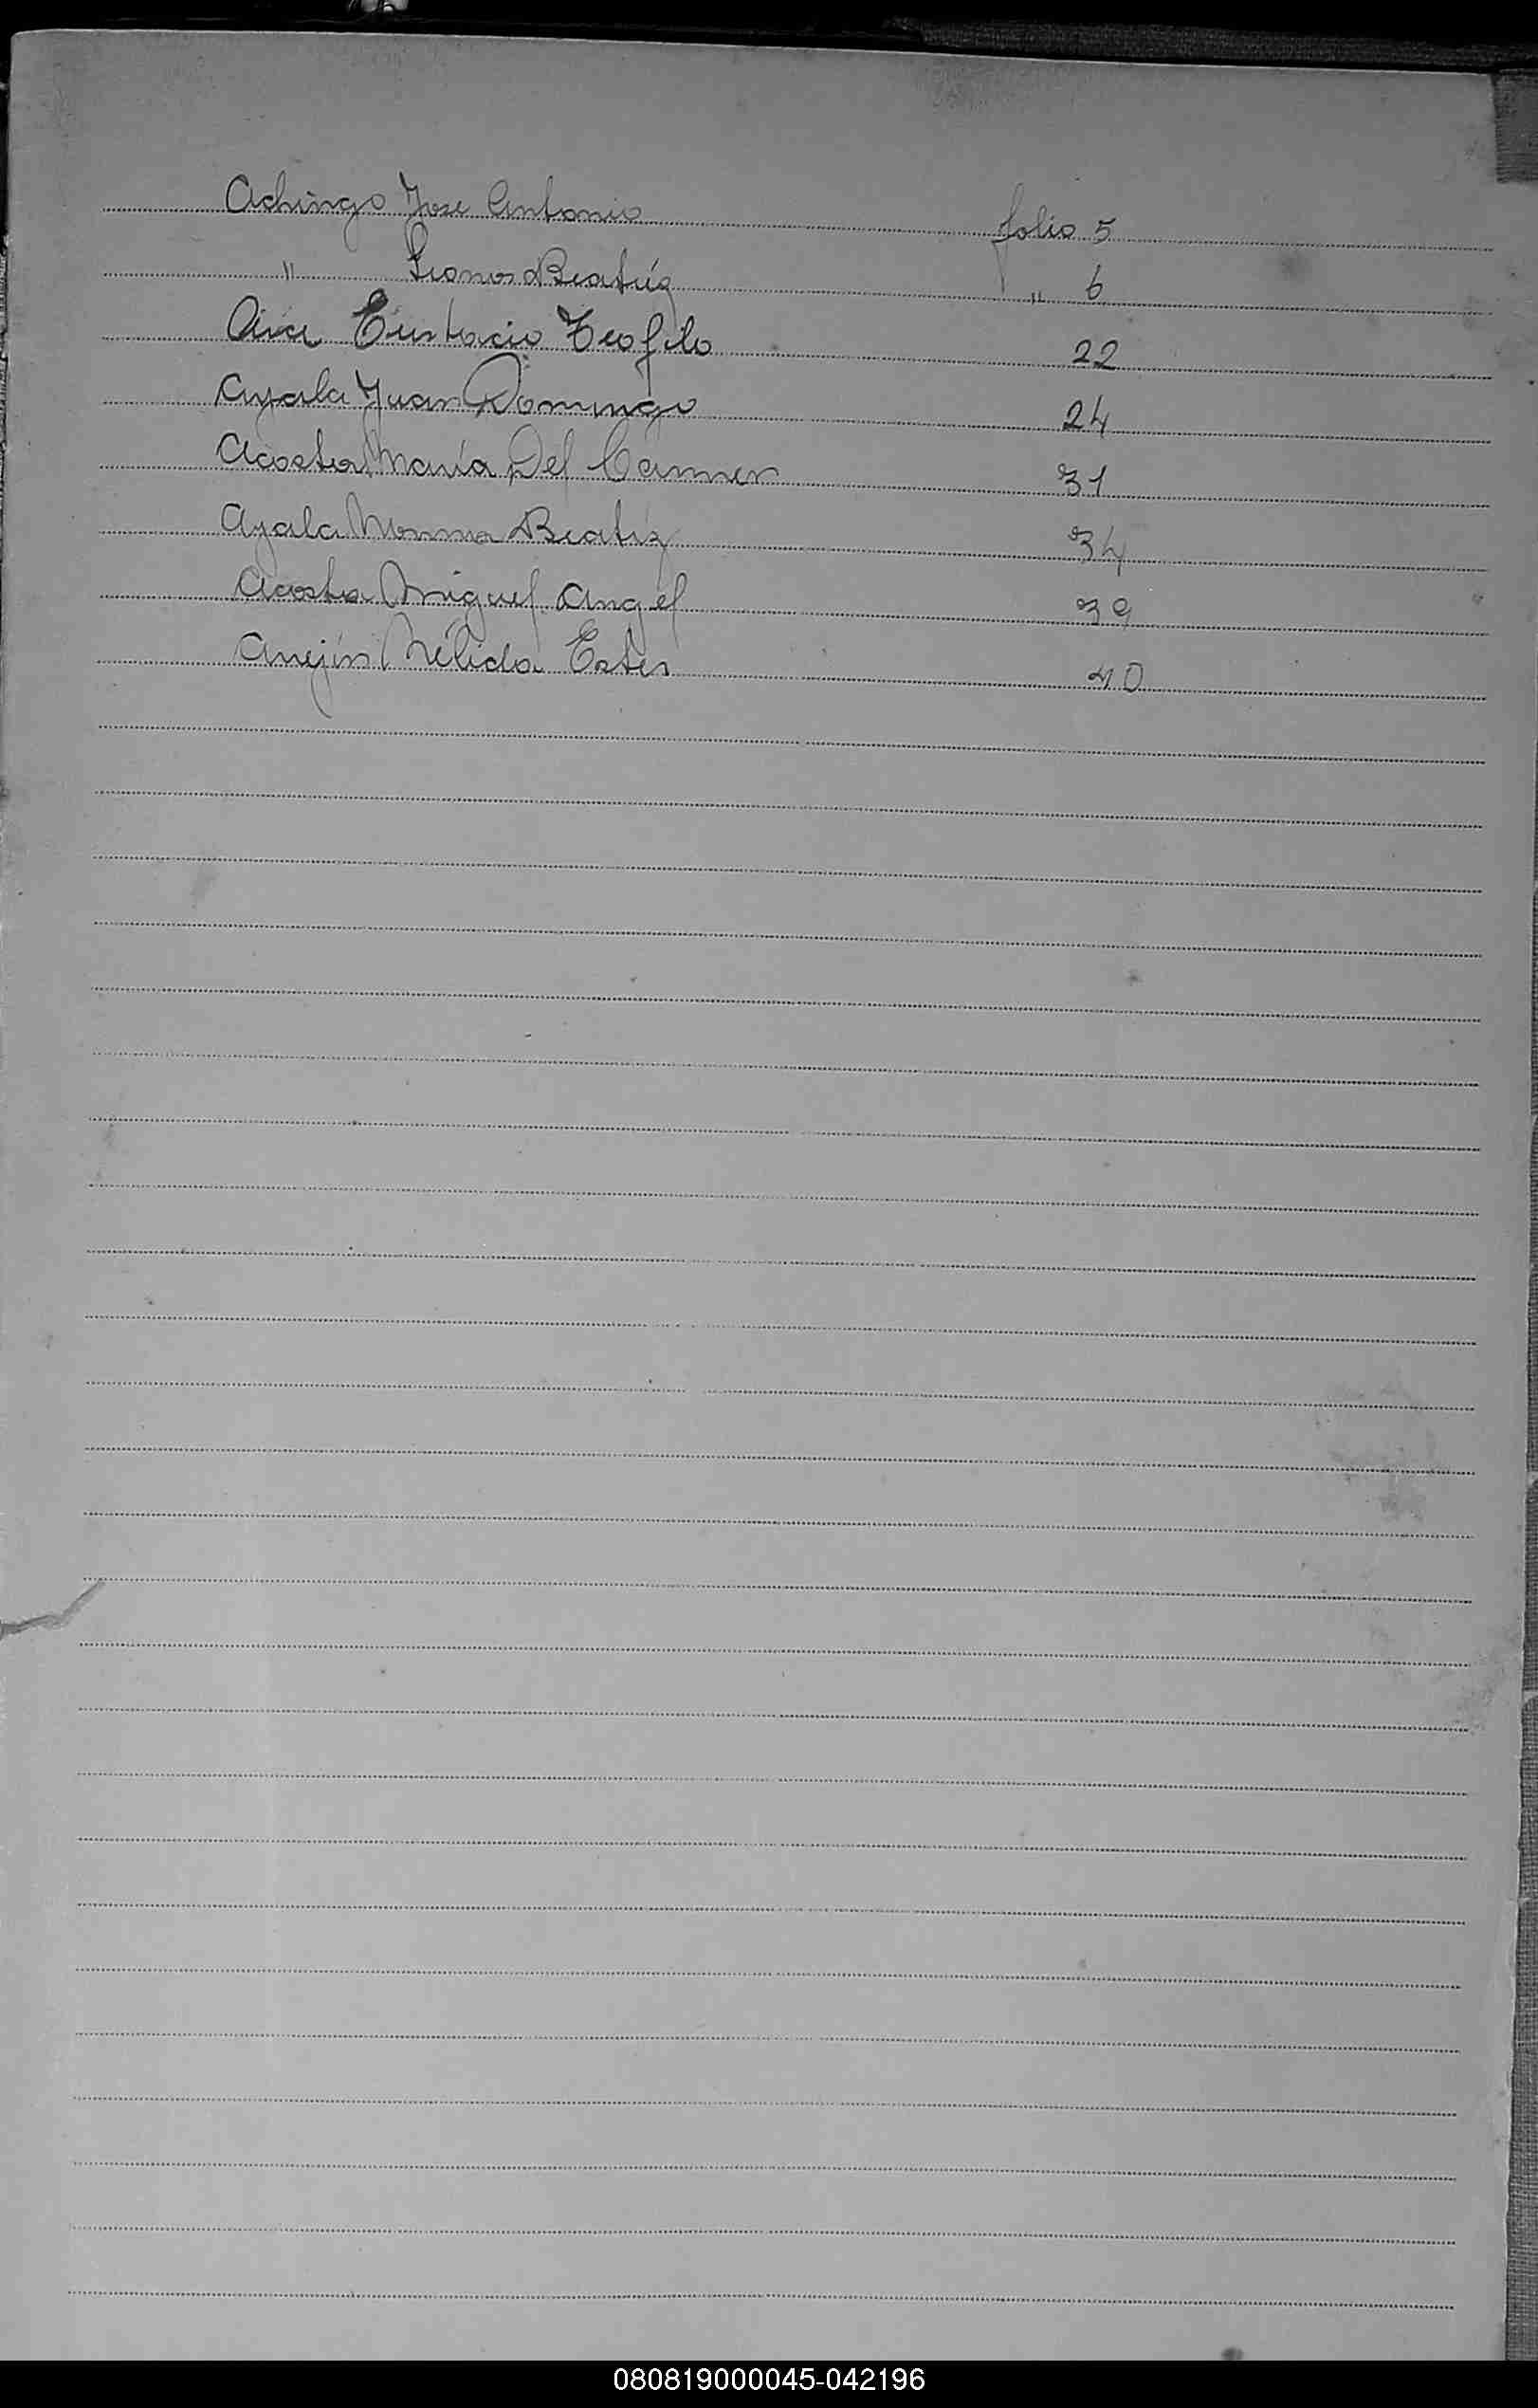 Achingo Jose Antonio folio 5
" Leonor Beatríz " 6
Eustacio Teofilo 22
Ayala Juan Domingo 24
Acosta María Del Carmen 31
Ayala Norma Beatriz 34
Acosta Miguel Angel 39
Nélida Ester 40
080819000045-042196